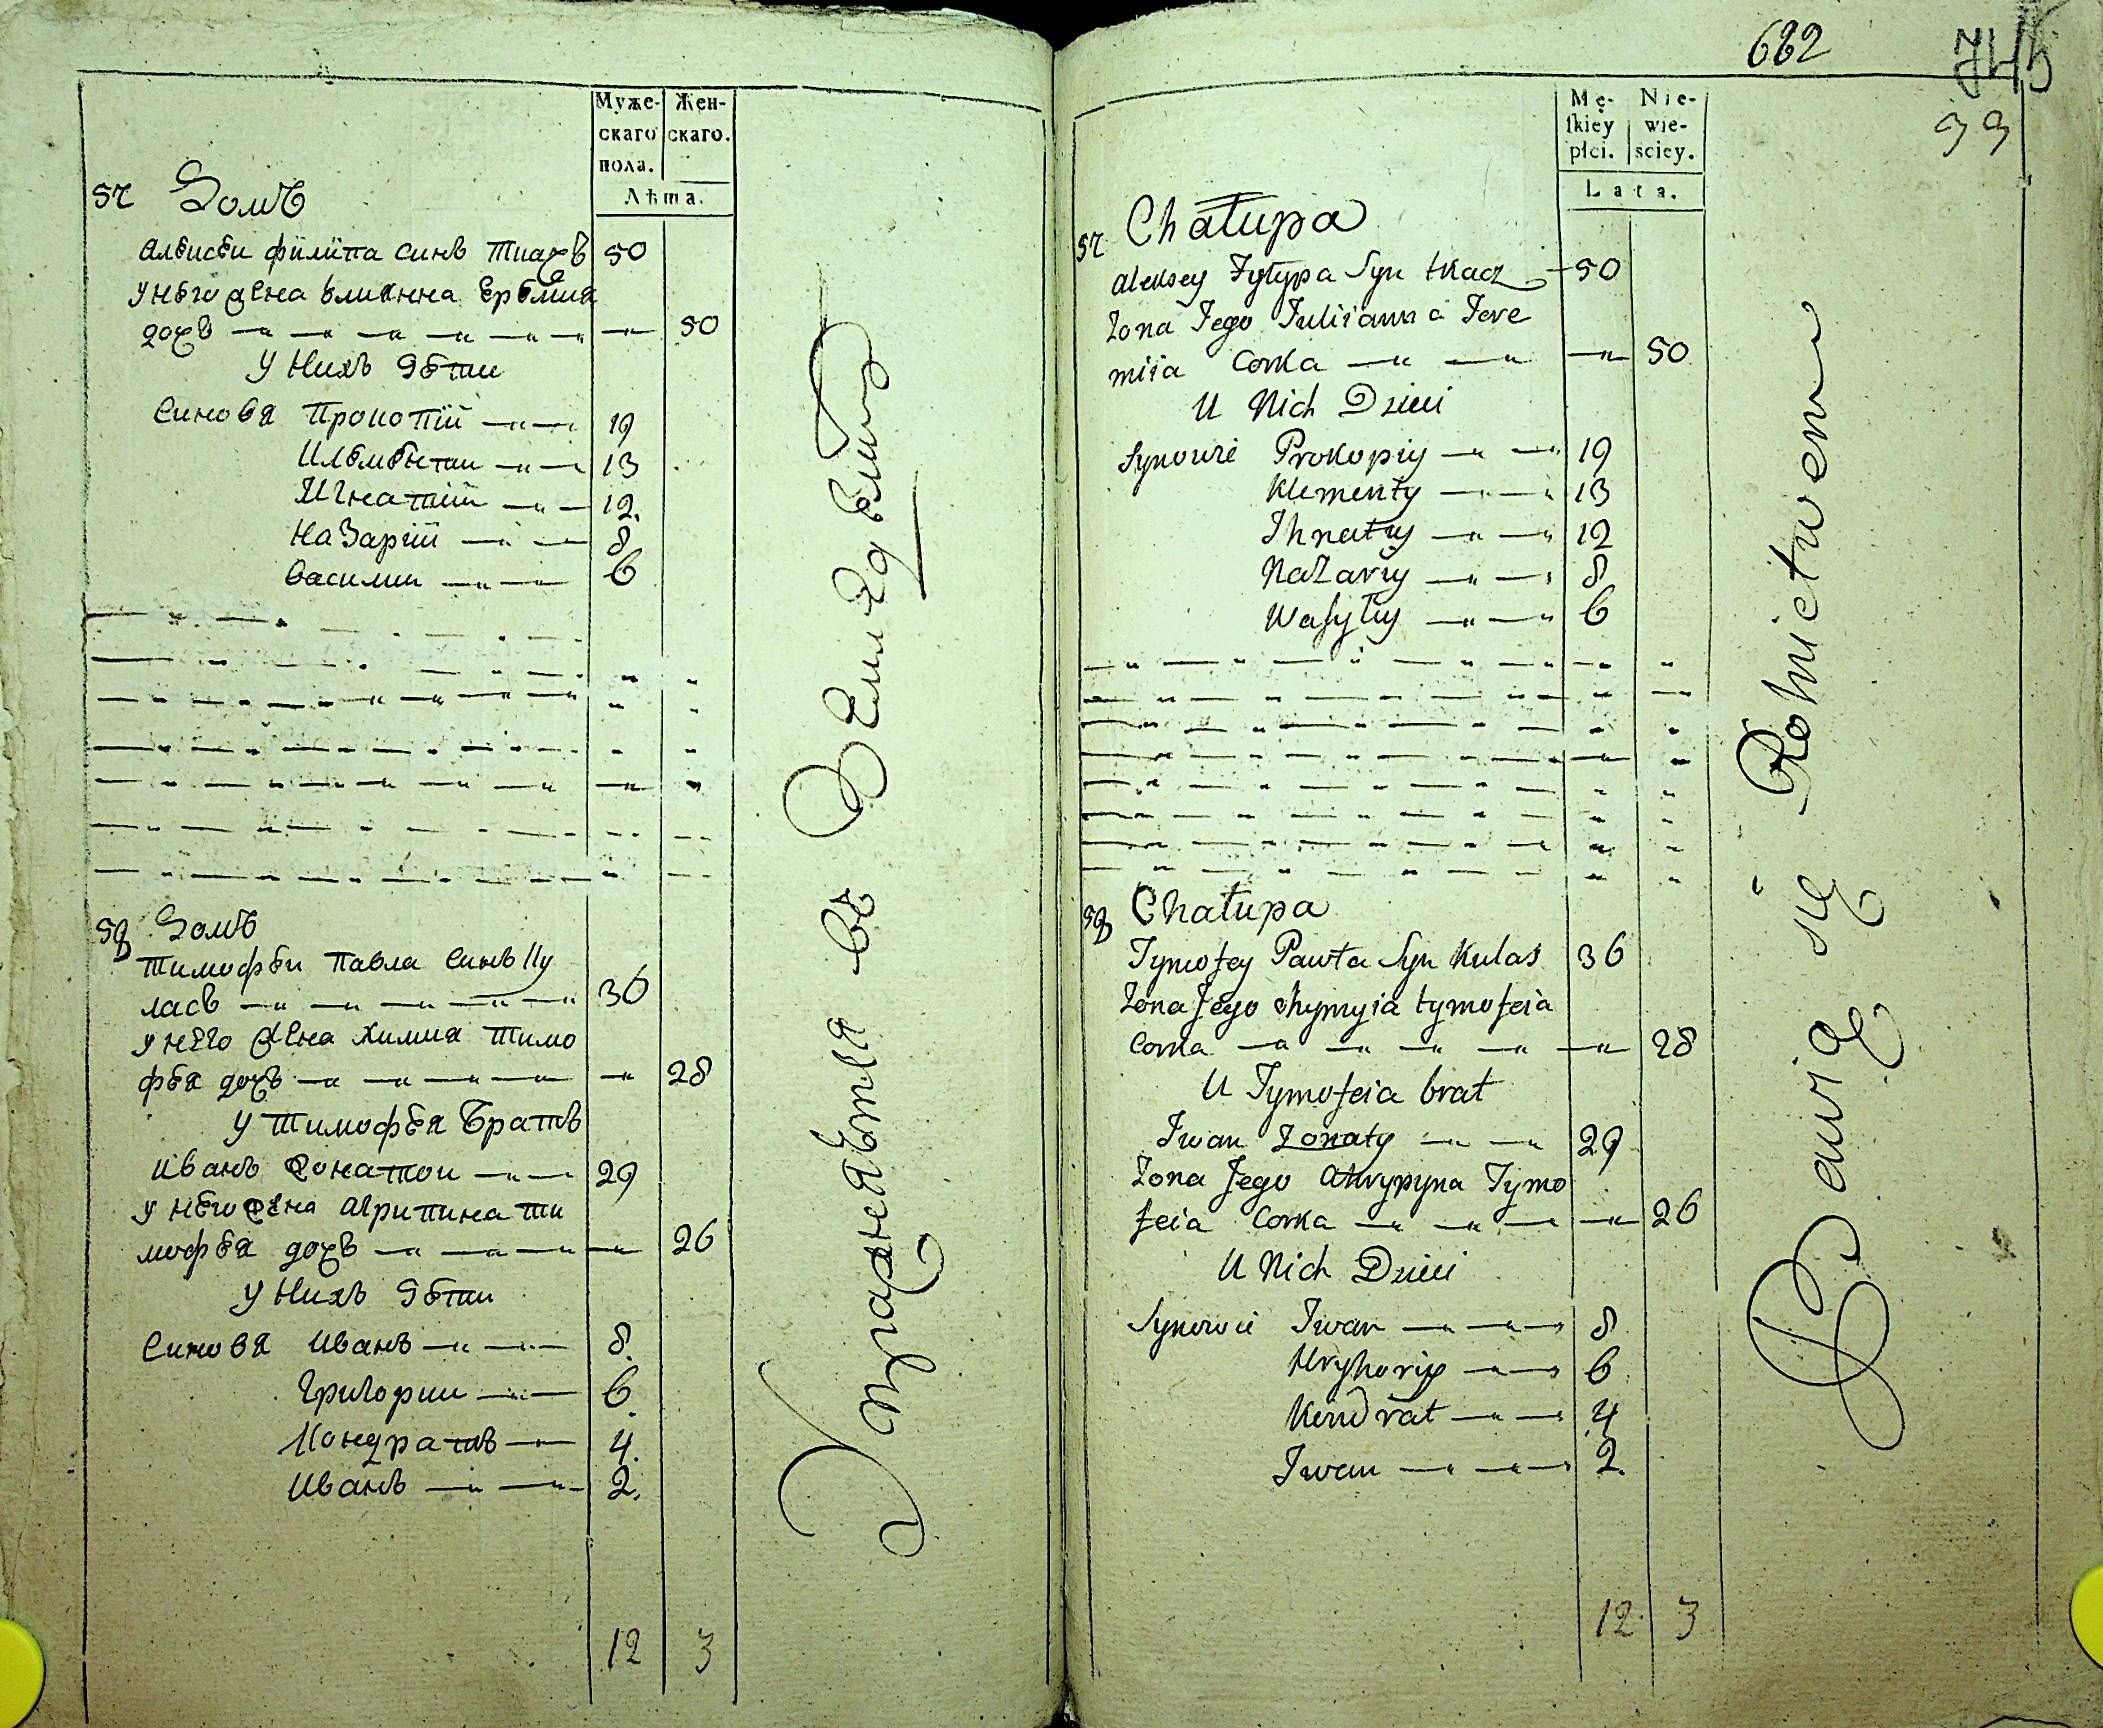 Муже-
скаго
пола.
Жен-
скаго.
Лѣта.
57 Домъ
Алексеи Филипа синъ ткачъ 50
У него жена Улианна Еремия
дочъ 50
У нихъ дети
Синовя Прокопїй 19
Клементи 13
Игнатїй 12.
Назарїй 8
Василии 6
58 Домъ
Тимофеи Павла синъ Ку
ласъ 36
У него жена Химия Тимо
фея дочъ 28
У Тимофея братъ
Иванъ жонатои 29
У него жена Агрипина Ти
мофея дочъ 26
У нихъ дети
Синовя Иванъ 8.
Григории 6.
Кондратъ 4.
Иванъ 2.
12 3
Упражняетця въ Земледелии
682
745
99
Mę-
ſkiey
płci.
Nie-
wie-
sciey.
Lata.
57 Chałupa
Aleksey Fyłypa Syn tkacz 50
Zona Jego Julianna Jere
miia Corka 50
U Nich Dzieci
Synowie Prokopiy 19
Klementy 13
Ihnatiy 12
Nazariy 8
Wasyliy 6
58 Chałupa
Tymofey Pawła Syn Kulas 36
Zona Jego Chymyia tymofeia
Corka 28
U Tymofeia brat
Iwan Zonaty 29
Zona Jego Ahrypyna Tymo
feia Corka 26
U Nich Dzieci
Synowie Iwan 8
Hryhoriy 6
Kondrat 4
Iwan 2.
12 3
Bawią się Rolnictwem